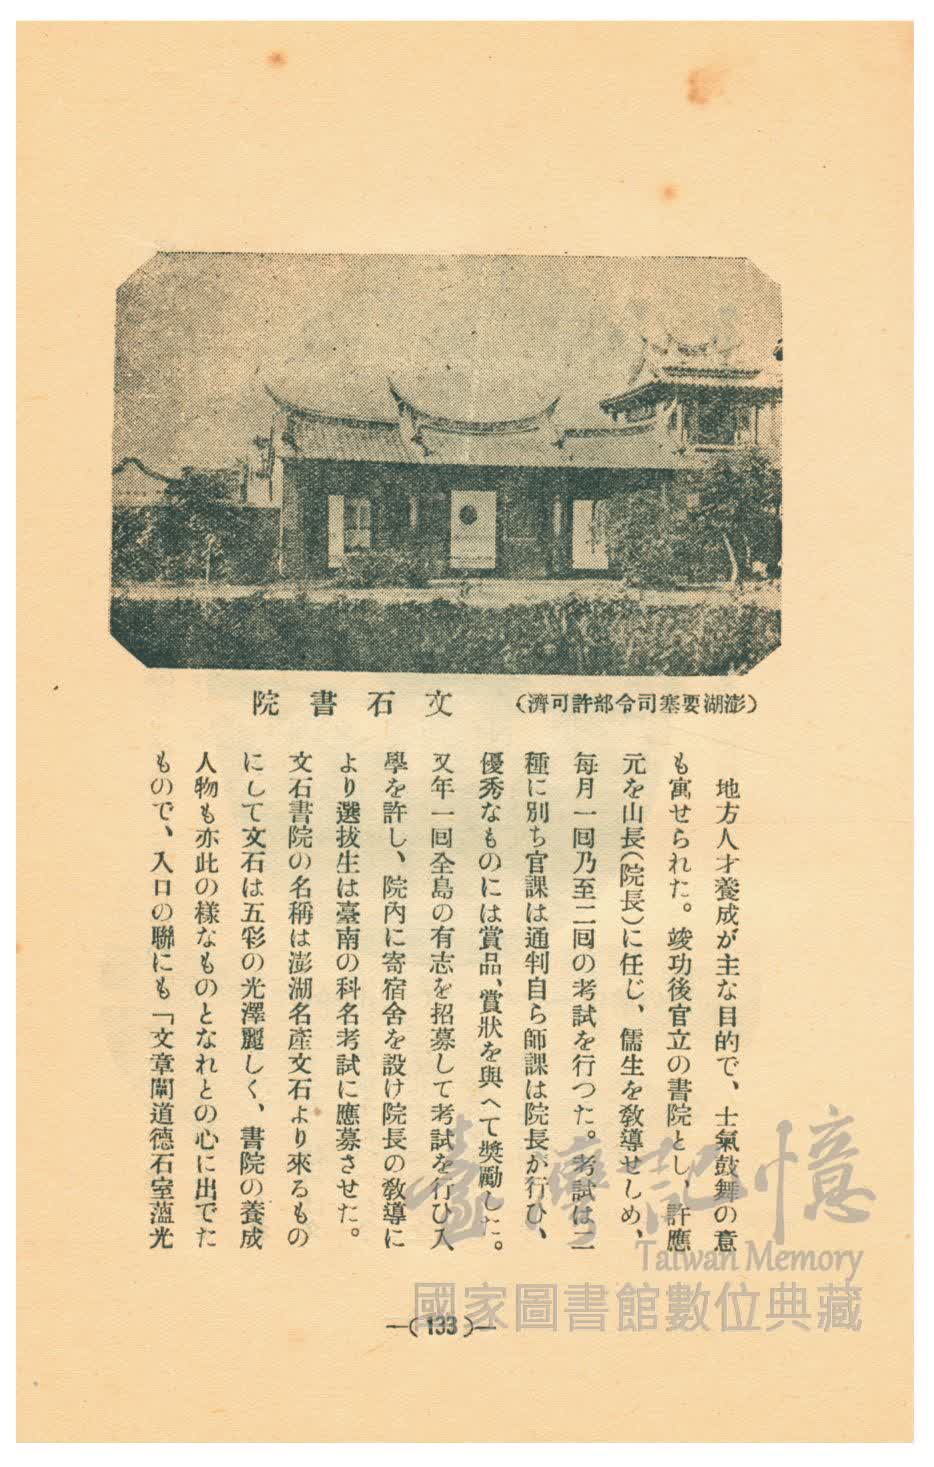 文石書院
(澎湖要塞司令部許可濟)
地方人才養成が主な目的で、士氣鼓舞の意
も寓せられた。竣功後官立の書院とし、許應
元を山長(院長)に任じ、儒生を敎導せしめ、
每月一回乃至二回の考試を行つた。考試は二
種に別ち官課は通判自ら師課は院長が行ひ、
優秀なものには賞品、賞狀を與へて奬勵した。
又年一回全島の有志を招募して考試を行ひ入
學を許し、院內に寄宿舍を設け院長の敎導に
より選拔生は臺南の科名考試に應募させた。
文石書院の名稱は澎湖名產文石より來るもの
にして文石は五彩の光澤麗しく、書院の養成
人物も亦此の樣なものとなれとの心に出でた
もので、入口の聯にも「文章闡道德石室蘊光
—(133)—
臺灣記憶
Taiwan Memory
國家圖書館數位典藏